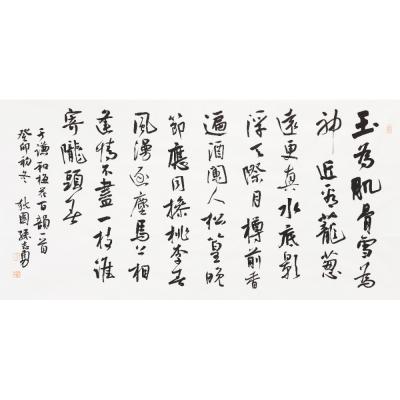 玉为肌骨雪為
神近看蘢葱
遠更真水底影
浮天際月樽前香
逼酒闌人松篁晚
節應同操桃李春
風漫逐塵馬上相
逢情不盡一枝誰
寄隴頭春
于谦和梅花百韵一首
癸卯初冬